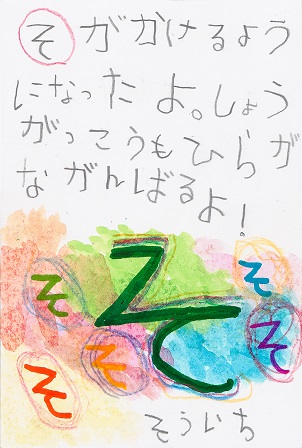 そがかけるよう
になったよ。しょう
がっこうもひらが
ながんばるよ!
そ
そ
そ
そ
そ
そ
そういち